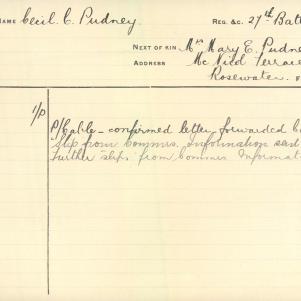 NAME Cecil. C. Pudney. REG. &C. 27th Batt
NEXT OF KIN Mrs Mary E. Pudne
ADDRESS McNicol Terrace
Rosewater.
1/P
P/Cable - confirmed letter forwarded
slip from Commrs. Information said
further slips from Commrs Informat